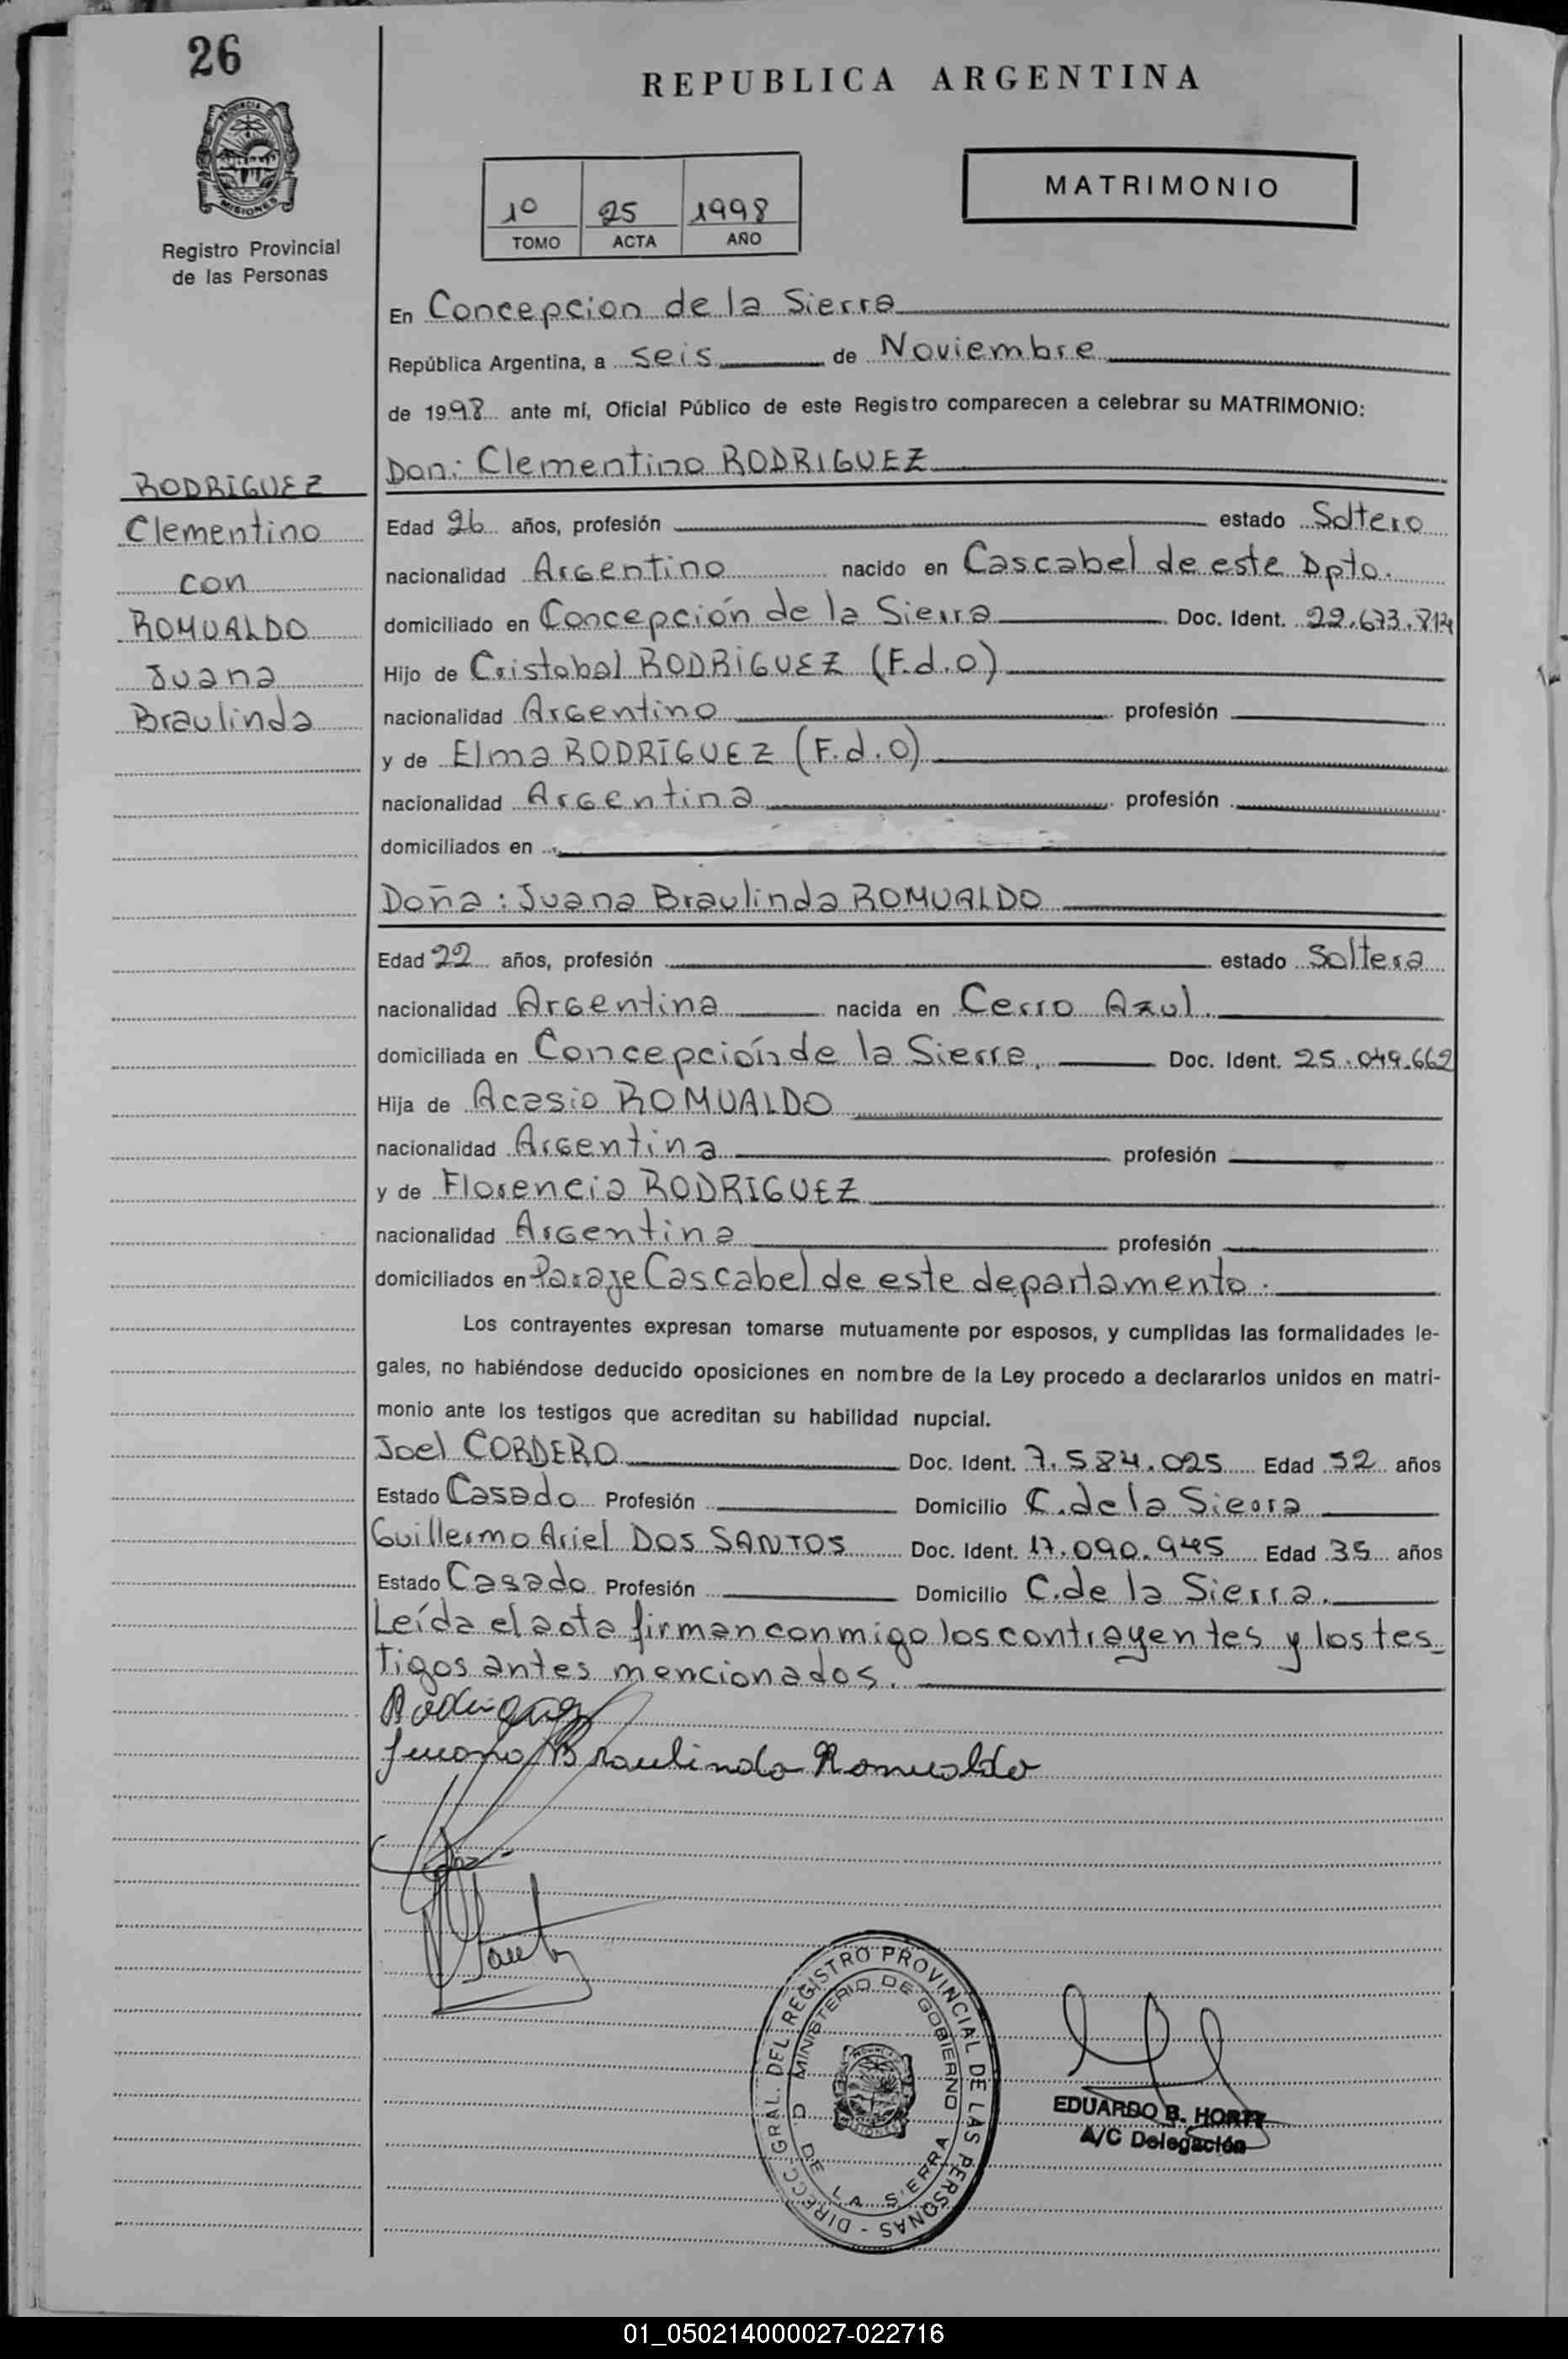 26
PROVINCIA
MISIONES
Registro Provincial
de las Personas
REPUBLICA ARGENTINA
1º 25 1998
TOMO ACTA AÑO
MATRIMONIO
En Concepcion de la Sierra
República Argentina, a seis de Noviembre
de 1998 ante mí, Oficial Público de este Registro comparecen a celebrar su MATRIMONIO:
Don: Clementino RODRIGUEZ
RODRIGUEZ
Clementino
con
ROMUALDO
Juana
Braulinda
Edad 26 años, profesión estado Soltero
nacionalidad Argentino nacido en Cascabel de este Dpto.
domiciliado en Concepción de la Sierra Doc. Ident. 22.673.814
Hijo de Cristobal RODRIGUEZ (F.d.o)
nacionalidad Argentino profesión
y de Elma RODRÍGUEZ (F.d.o)
nacionalidad Argentina profesión
domiciliados en
Doña: Juana Braulinda ROMUALDO
Edad 22 años, profesión estado Soltera
nacionalidad Argentina nacida en Cerro Azul.
domiciliada en Concepción de la Sierra. Doc. Ident. 25.049.662
Hija de Acasio ROMUALDO
nacionalidad Argentina profesión
y de Florencia RODRIGUEZ
nacionalidad Argentina profesión
domiciliados en Paraje Cascabel de este departamento.
Los contrayentes expresan tomarse mutuamente por esposos, y cumplidas las formalidades le-
gales, no habiéndose deducido oposiciones en nombre de la Ley procedo a declararlos unidos en matri-
monio ante los testigos que acreditan su habilidad nupcial.
Joel CORDERO Doc. Ident. 7.584.025 Edad 52 años
Estado Casado Profesión Domicilio C. de la Sierra
Guillermo Ariel DOS SANTOS Doc. Ident. 17.090.945 Edad 35 años
Estado Casado Profesión Domicilio C. de la Sierra.
Leída el acta firman conmigo los contrayentes y los tes-
tigos antes mencionados.
Juana Braulinda Romualdo
DIRECC. GRAL. DEL REGISTRO PROVINCIAL DE LAS PERSONAS -
MINISTERIO DE GOBIERNO
DE LA SIERRA
EDUARDO B.
A/C Delegación
01_050214000027-022716